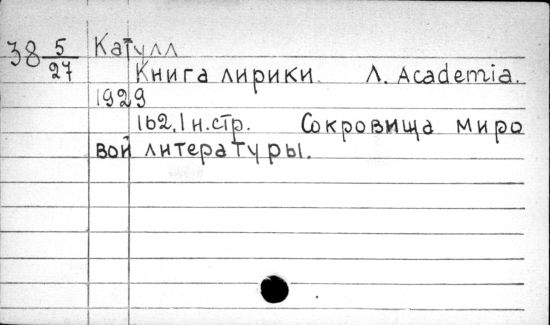 38 5/27 Катулл
Книга лирики. Л. Academia.
1929
162,1н.стр. Сокровища миро
вой литературы.